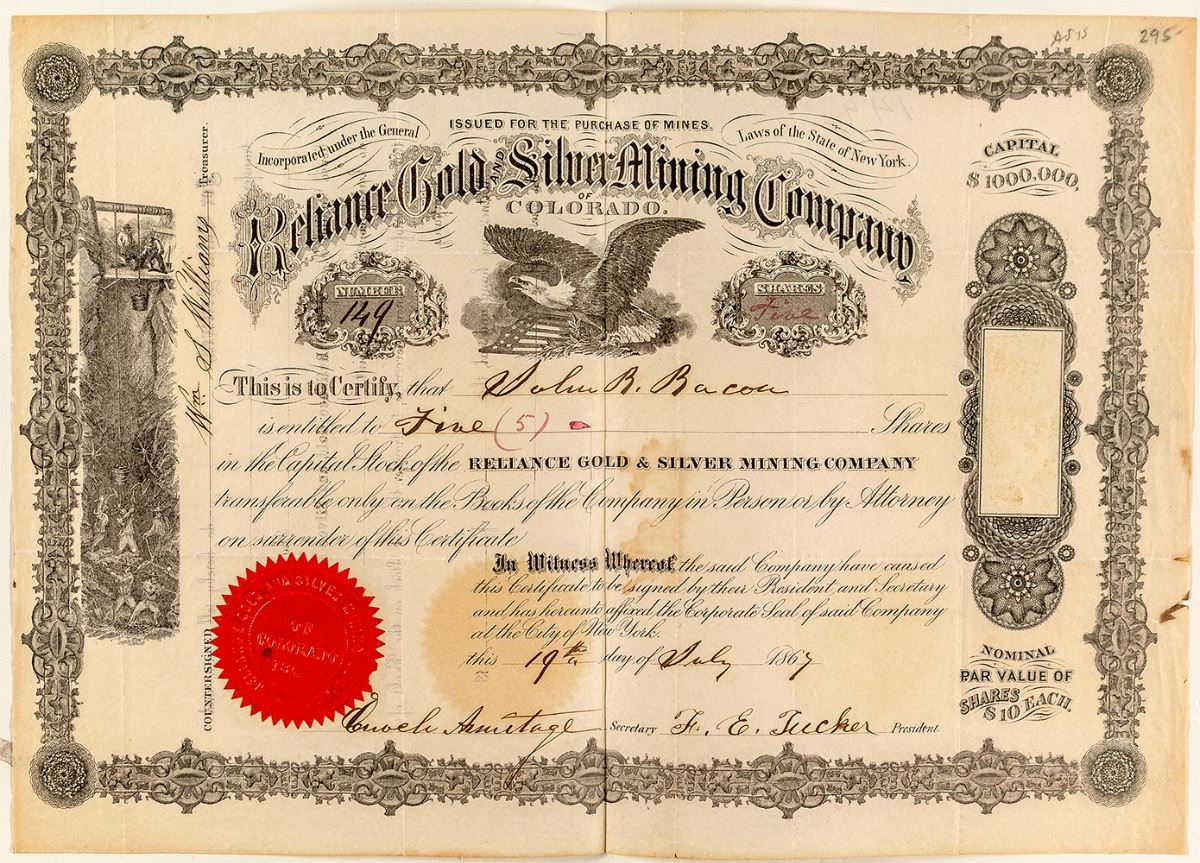 A515
295-
ISSUED FOR THE PURCHASE OF MINES.
Incorporated under the General
Laws of the State of New York.
Reliance Gold AND Silver Mining Company
OF
COLORADO.
CAPITAL
$1000.000,
NUMBER
149
SHARES
Five
This is to Certify, that John R. Bacon
is entitled to Five (5) Shares
in the Capital Stock of the RELIANCE GOLD & SILVER MINING COMPANY
transferable only on the Books of the Company in Person or by Attorney
on surrender of this Certificate
In Witness Whereof, the said Company have caused
this Certificate to be signed by their President and Secretary
and has hereunto affixed the Corporate Seal of said Company
at the City of New York.
this 19th day of July 1867
Enoch Armitage Secretary F. E. Tucker President.
COUNTERSIGNED Wm S Williams Treasurer.
GOLD AND SILVER
OF
COLORADO
NOMINAL
PAR VALUE OF
SHARES
$10 EACH.